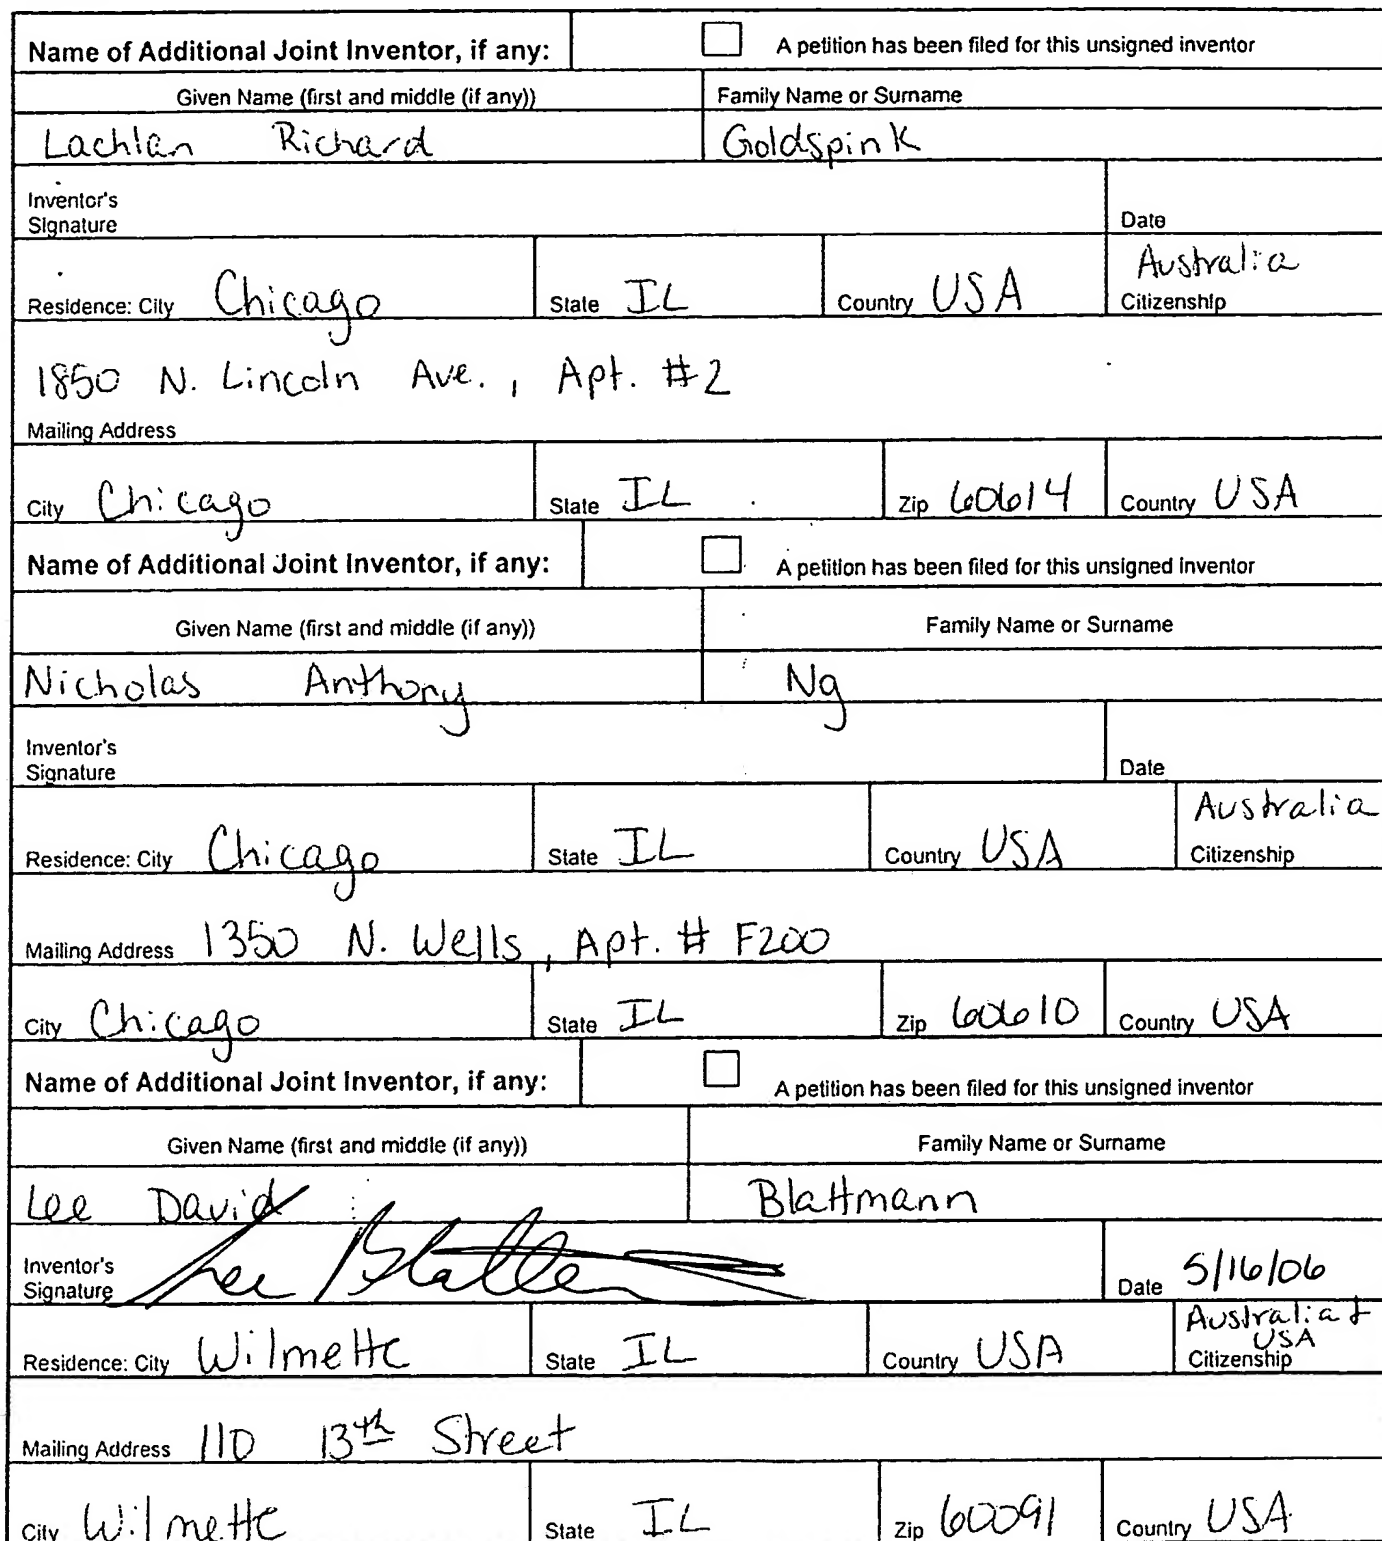 Name of Additional Joint Inventor, if any: A petition has been filed for this unsigned inventor
Given Name (first and middle (if any)) Family Name or Surname
Lachlan Richard Goldspink
Inventor's
Signature Date
Australia
Residence: City Chicago State IL Country USA Citizenship
1850 N. Lincoln Ave., Apt. #2
Mailing Address
City Chicago State IL Zip 60614 Country USA
Name of Additional Joint Inventor, if any: A petition has been filed for this unsigned inventor
Given Name (first and middle (if any)) Family Name or Surname
Nicholas Anthony Ng
Inventor's
Signature Date
Australia
Residence: City Chicago State IL Country USA Citizenship
Mailing Address 1350 N. Wells, Apt. # F200
City Chicago State IL Zip 60610 Country USA
Name of Additional Joint Inventor, if any: A petition has been filed for this unsigned inventor
Given Name (first and middle (if any)) Family Name or Surname
Lee David Blattmann
Inventor's
Signature Lee Blatt Date 5/16/06
Australia +
USA
Residence: City Wilmette State IL Country USA Citizenship
Mailing Address 110 13th Street
City Wilmette State IL Zip 60091 Country USA